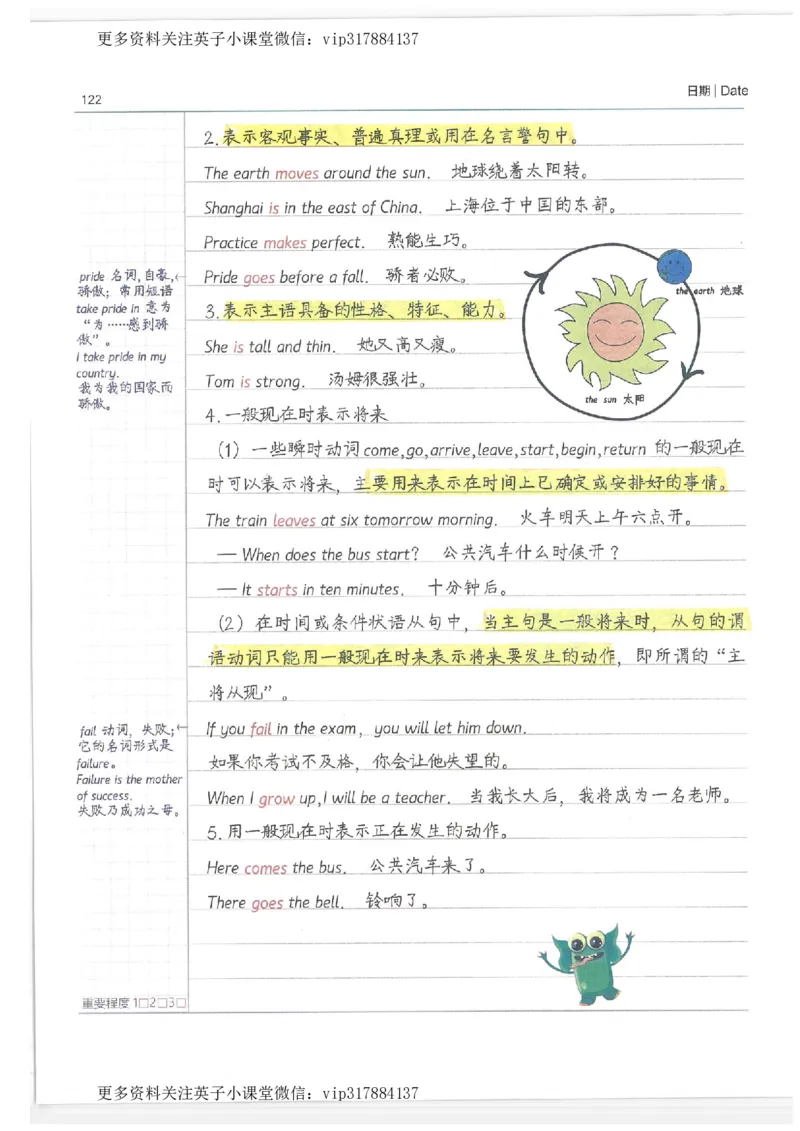 更多资料关注英子小课堂微信：vip317884137
122
日期 | Date
2.表示客观事实、普遍真理或用在名言警句中。
The earth moves around the sun. 地球绕着太阳转。
Shanghai is in the east of China. 上海位于中国的东部。
Practice makes perfect. 熟能生巧。
Pride goes before a fall. 骄者必败。
pride 名词,自豪,←
骄傲；常用短语
take pride in 意为
“为……感到骄
傲”。
I take pride in my
country.
我为我的国家而
骄傲。
the earth 地球
the sun 太阳
3.表示主语具备的性格、特征、能力。
She is tall and thin. 她又高又瘦。
Tom is strong. 汤姆很强壮。
4.一般现在时表示将来
（1）一些瞬时动词come,go,arrive,leave,start,begin,return 的一般现在
时可以表示将来，主要用来表示在时间上已确定或安排好的事情。
The train leaves at six tomorrow morning. 火车明天上午六点开。
— When does the bus start? 公共汽车什么时候开？
— It starts in ten minutes. 十分钟后。
（2）在时间或条件状语从句中，当主句是一般将来时，从句的谓
语动词只能用一般现在时来表示将来要发生的动作，即所谓的“主
将从现”。
fail 动词，失败;←
它的名词形式是
failure。
Failure is the mother
of success.
失败乃成功之母。
If you fail in the exam, you will let him down.
如果你考试不及格，你会让他失望的。
When I grow up,I will be a teacher. 当我长大后，我将成为一名老师。
5.用一般现在时表示正在发生的动作。
Here comes the bus. 公共汽车来了。
There goes the bell. 铃响了。
重要程度 1□2□3□
更多资料关注英子小课堂微信：vip317884137